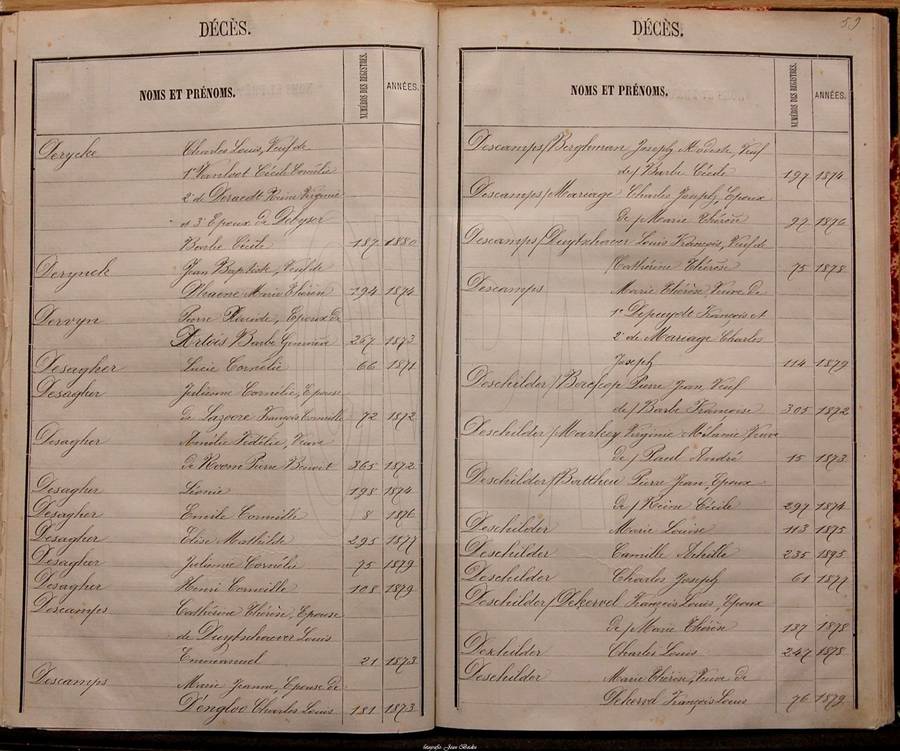 DÉCÈS.
NOMS ET PRÉNOMS. NUMÉROS DES REGISTRES. ANNÉES.
Derycke Charles Louis, Veuf de
1° Vanloot Cécile Cornélie
2° de Deraedt Reine Virginie
et 3° Epoux de Debyser
Barbe Cécile 187 1880
Derynck Jean Baptiste, Veuf de
Dhaene Marie Thérèse 194 1874
Dervyn Pierre Placide, Epoux de
Artois Barbe Geneviève 267 1873
Desagher Lucie Cornélie 66 1871
Desagher Julienne Cornélie, Epouse
de Lazoore François Corneille 72 1872
Desagher Amélie Fidélie, Veuve
de Room Pierre Benoit 365 1872
Desagher Léonie 198 1874
Desagher Emile Corneille 8 1876
Desagher Elise Mathilde 295 1877
Desagher Julienne Cornélie 75 1879
Desagher Henri Corneille 108 1879
Descamps Cathérine Thérèse, Epouse
de Duytschaever Louis
Emmanuel 21 1873
Descamps Marie Jeanne, Epouse de
Dengloo Charles Louis 181 1873
59
DÉCÈS.
NOMS ET PRÉNOMS. NUMÉROS DES REGISTRES. ANNÉES.
Descamps/Berghman Joseph Modeste, Veuf
de/ Barbe Cécile 197 1874
Descamps/Mariage Charles Joseph, Epoux
de/ Marie Thérèse 97 1876
Descamps/Duytschaever Louis François, Veuf de
/Cathérine Thérèse 75 1878
Descamps Marie Thérèse, Veuve de
1° Depuydt François et
2° de Mariage Charles
Joseph 114 1879
Deschilder/ Pierre Jean, Veuf
de/ Barbe Françoise 305 1872
Deschilder/Markey Virginie Mélanie Veuve
de/ Paul André 15 1873
Deschilder/Battheu Pierre Jean, Epoux
de/ Reine Cécile 297 1874
Deschilder Marie Louise 113 1875
Deschilder Camille Achille 235 1895
Deschilder Charles Joseph 61 1877
Deschilder/Dekervel François Louis, Epoux
de/ Marie Thérèse 137 1878
Deschilder Charles Louis 247 1878
Deschilder Marie Thérèse, Veuve de
Dekervel François Louis 76 1879